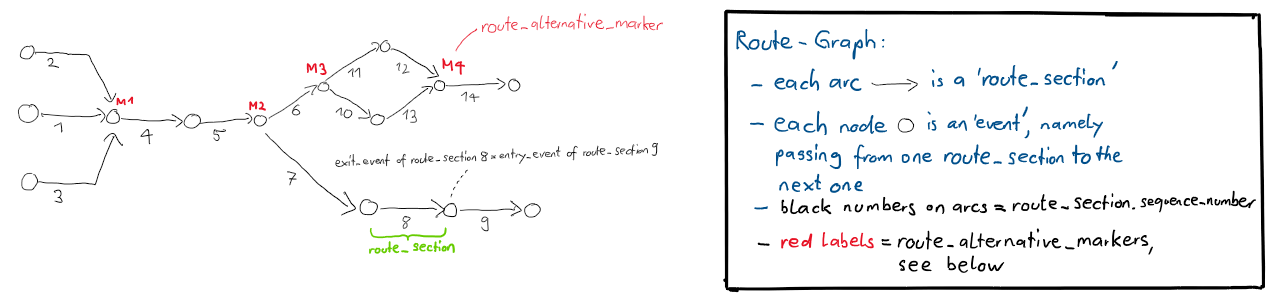 route_alternative_marker
2
M1
1
4
5
M2
3
6
M3
11
12
M4
10
13
14
exit_event of route_section 8 = entry_event of route_section 9
7
8
9
route_section
Route-Graph:
- each arc → is a 'route_section'
- each node O is an 'event', namely
passing from one route_section to the
next one
- black numbers on arcs = route_section.sequence_number
- red labels = route_alternative_markers,
see below